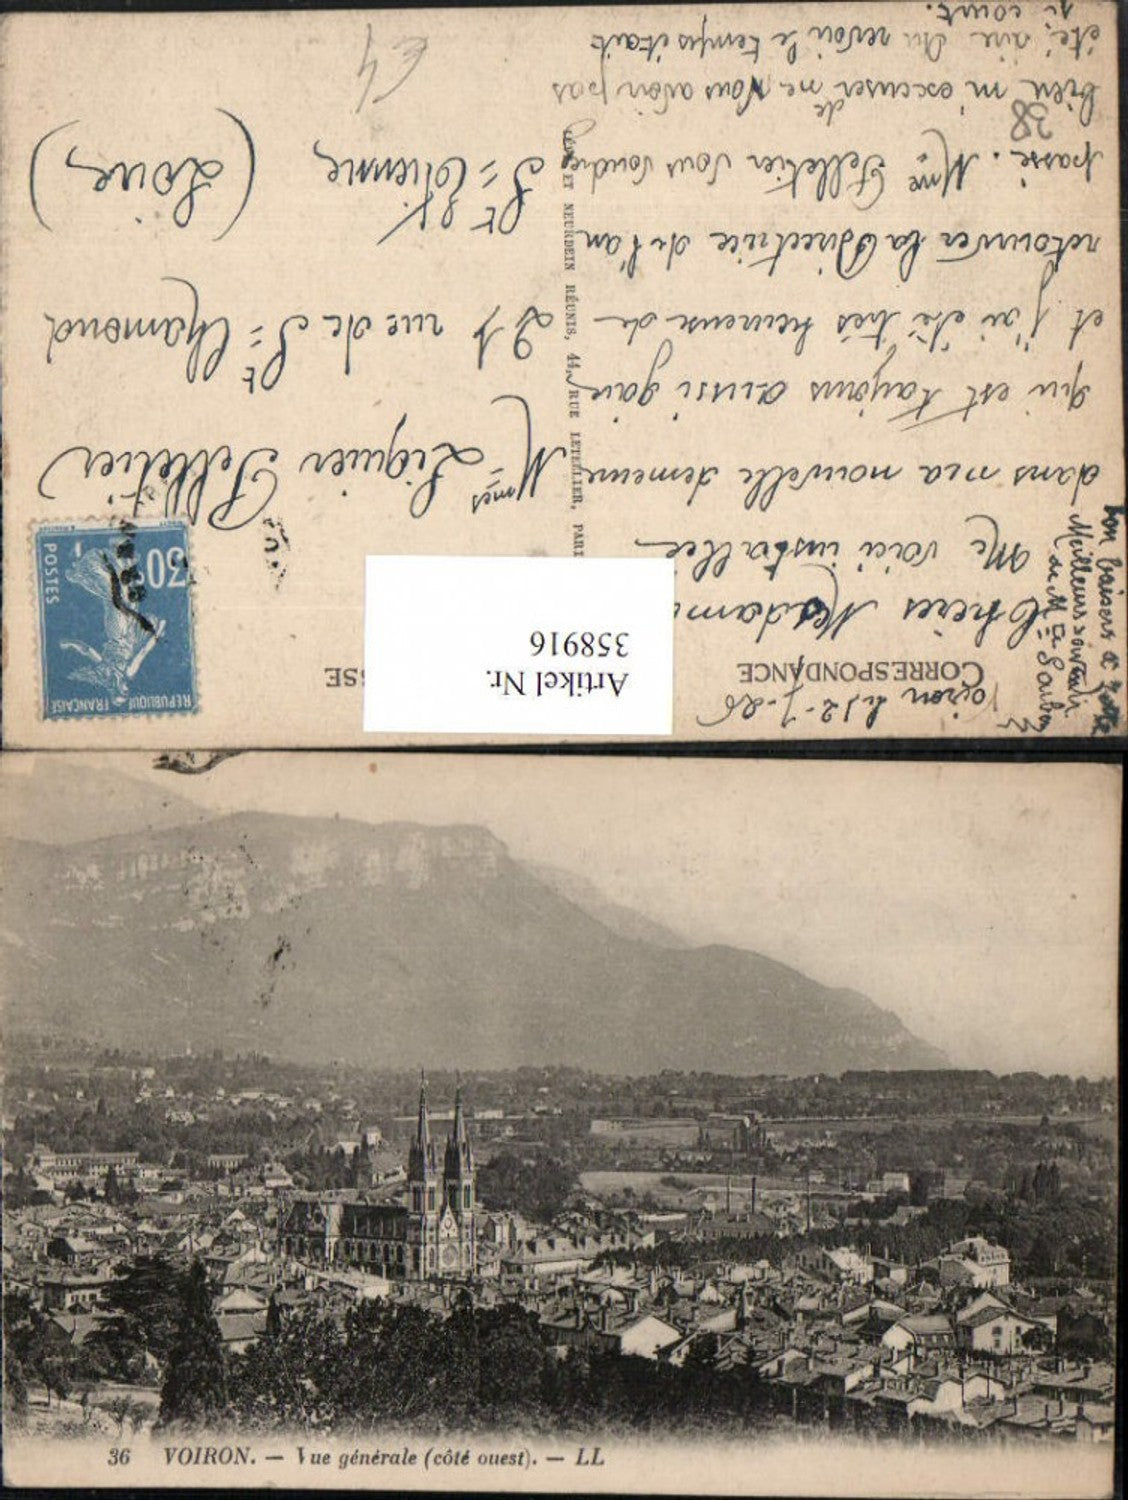 CORRESPONDANCE
Voiron le 12-7-26
Chères Mesdam
Me voici installée
dans ma nouvelle demeure
qui est toujours aussi gaie
et j'ai été très heureuse de
retourner la Directrice de l'an
passé. Mme Pelletier vous voudrez
bien m'excuser de ne vous avoir pas
été dire au revoir le temps était
si court.
bon baisers à
Meilleurs souvenir
de Mlle
SSE
Mmes Liguier Pelletier
27 rue de St Chamond
St Etienne
(Loire)
ET NEURDEIN RÉUNIS, 44, RUE LETELLIER, PARI
REPUBLIQUE FRANÇAISE
30c
POSTES
38
Artikel Nr.
358916
36 VOIRON. — Vue générale (côté ouest). — LL